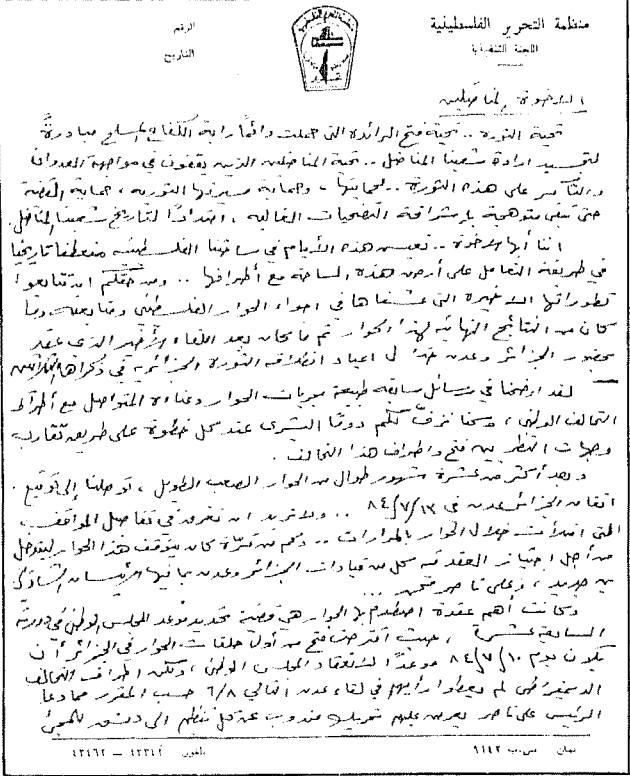 منظمة التحرير الفلسطينية
اللجنة التنفيذية
الرقم
التاريخ
الاخوة المناضلين
تحية الثورة .. تحية فتح الرائدة التي حملت دائماً راية الكفاح المسلح مبادرةً
لتجسيد ارادة شعبنا المناضل .. تحية المناضلين الذين يقفون في مواجهة العدوان
والتآمر على هذه الثورة .. لحمايتها ، وحماية مسيرتها الثورية ، حماية القضية
حتى تبقى متوهجة بإشراقة التضحيات الغالية ، امتداداً لتاريخ شعبنا المناضل.
اننا أيها الاخوة .. نعيش هذه الأيام في ساحتنا الفلسطينية منعطفاً تاريخيا
في طريقة التعامل على أرض هذه الساحة مع أطرافها .. ومن حقكم ان تتابعوا
تطوراتها الاخيرة التي عشناها في اجواء الحوار الفلسطيني ومتابعته وما
كان من النتائج النهائية لهذا الحوار ثم ما كان بعد اللقاء الأخير الذي عقد
بحضور الجزائر وعدن خلال اعياد انطلاقة الثورة الجزائرية في ذكراها الثلاثين
لقد اوضحنا في رسائل سابقة طبيعة مجريات الحوار وعناءه المتواصل مع أطراف
التحالف الوطني ، وكنا نزف لكم دوماً البشرى عند كل خطوة على طريق تقارب
وجهات النظر بين فتح واطراف هذا التحالف .
وبعد أكثر من عشرة شهور طوال من الحوار الصعب الطويل ، توصلنا إلى توقيع
اتفاق الجزائر عدن في ٨٤/٧/١٣ .. ولا نريد ان نغرق في تفاصيل المواقف
التي امتلأت خلال الحوار بالمرارات .. وكم من مرّة كان يتوقف هذا الحوار ليتدخل
من أجل اجتياز العقد كل من قيادات الجزائر وعدن بما فيها الرئيسان الشاذلي
بن جديد ، وعلي ناصر محمد ...
وكانت أهم عقدة اصطدم بها الحوار هي قضية تحديد موعد المجلس الوطني في دورته
السابعة عشرة ، حيث اقترحنا فتح من أول حلقات الحوار في الجزائر أن
يكون يوم ٨٤/٧/١٠ موعداً لانعقاد المجلس الوطني ، ولكن اطراف التحالف
الديمقراطي لم يعطوا رأيهم في لقاء عدن التالي ٦/٨ حسب المقرر مما دعا
الرئيس علي ناصر يعرض عليهم مندوب عن كل تنظيم الى دمشق للمجيء
عمان ص.ب ٦١٤٢
تلفون